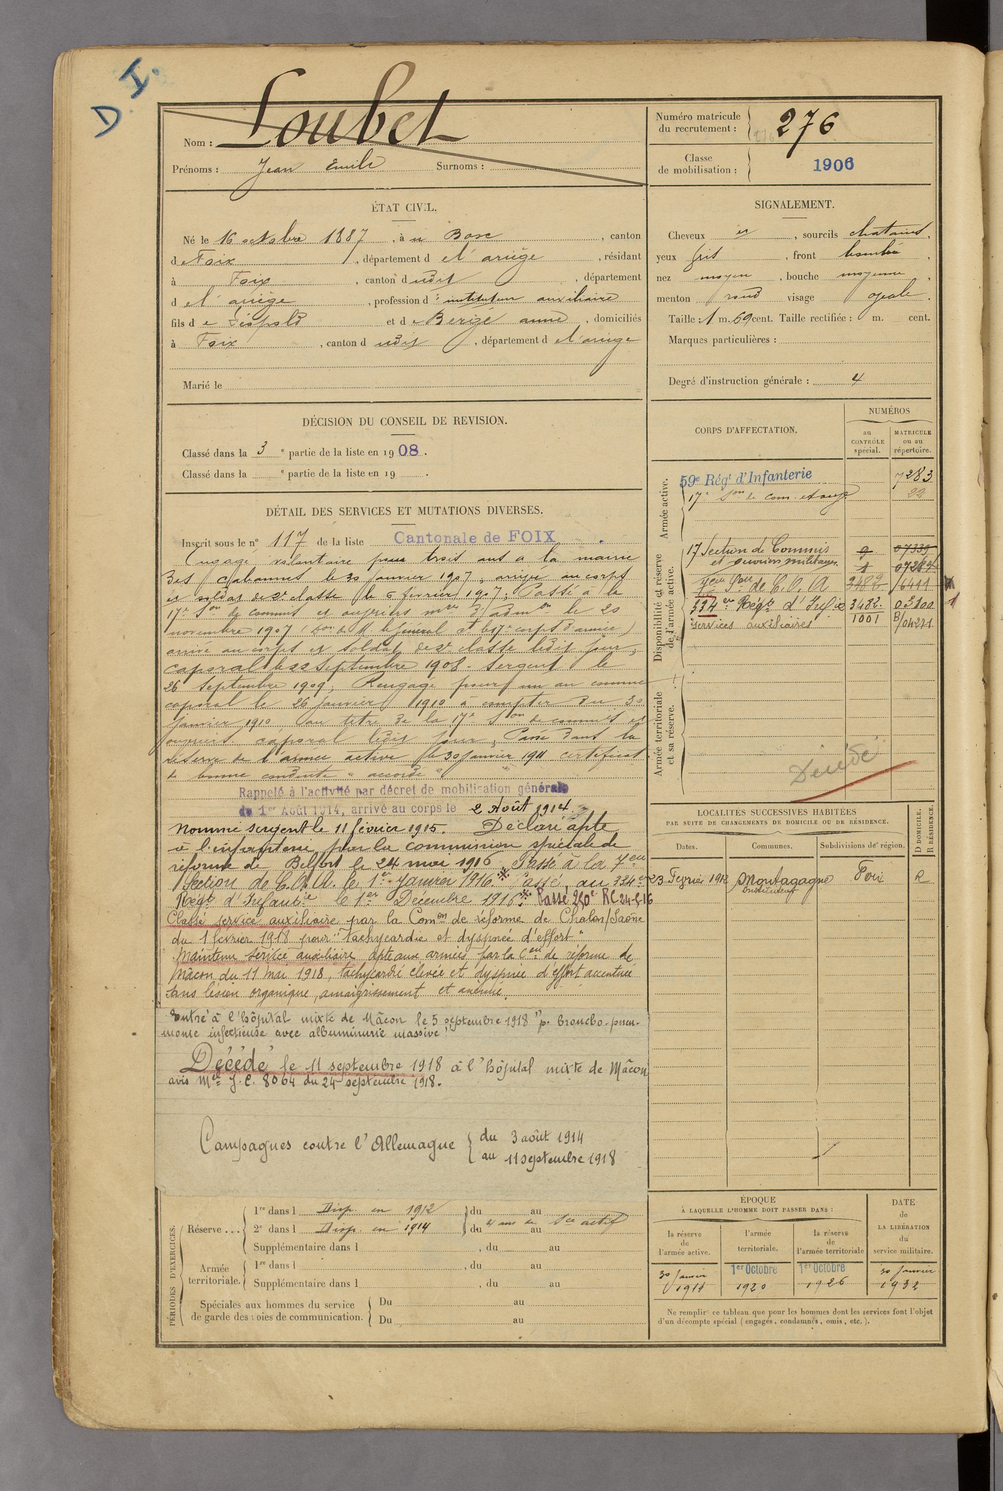 D. I.
Nom : Loubet
Prénoms : Jean Emile Surnoms :
Numéro matricule du recrutement : 276
Classe de mobilisation : 1906
ÉTAT CIVIL.
Né le 16 octobre 1887, à Bosc, canton
d Foix, département d e l'ariège, résidant
à Foix, canton d udit, département
d e l'ariège, profession d' instituteur auxiliaire
fils d e Léopold et d e Berge anne, domiciliés
à Foix, canton d udit, département d e l'ariège
Marié le
SIGNALEMENT.
Cheveux et, sourcils chatains.
yeux gris, front bombé
nez moyen, bouche moyenne
menton rond visage ovale.
Taille : 1 m. 69 cent. Taille rectifiée : m. cent.
Marques particulières :
Degré d'instruction générale : 4
DÉCISION DU CONSEIL DE REVISION.
Classé dans la 3 e partie de la liste en 1908.
Classé dans la e partie de la liste en 19 .
CORPS D'AFFECTATION.
NUMÉROS
au CONTRÔLE spécial.
MATRICULE ou au répertoire.
Armée active.
59e Régt d'Infanterie 7283
17e Son de com. et ouv 22
Disponibilité et réserve de l'armée active.
17 Section de Commis 9 07339
et ouvriers militaires 1
7eme Son de C. O. A 3482 6411
334 eme Régt d'Infie 3482
services auxiliaires 1001
Armée territoriale et sa réserve.
Décédé
DÉTAIL DES SERVICES ET MUTATIONS DIVERSES.
Inscrit sous le n° 117 de la liste Cantonale de FOIX.
Engagé volontaire pour trois ans à la mairie
des Cabannes le 30 janvier 1907, arrivé au corps
et soldat de 2e classe le 6 février 1907. Passé à la
17e Son de commis et ouvriers mres d'admon le 20
novembre 1907
arrivé au corps et soldat de 2e classe ledit jour,
caporal le 22 septembre 1908. Sergent le
26 septembre 1909, Rengagé pour un an comme
caporal le 26 janvier 1910 à compter du 30
janvier 1910 au titre de la 17e Son de commis et
ouvriers, caporal ledit jour, Passé dans la
réserve de l'armée active le 30 janvier 1911 certificat
de bonne conduite "accordé"
Rappelé à l'activité par décret de mobilisation générale
du 1er Août 1914, arrivé au corps le 2 Août 1914
Nommé sergent le 11 février 1915. Déclaré apte
à l'infanterie par la commission spéciale de
réforme de Belfort le 24 mai 1916 Passé à la 7eme
Section de C.O.A. le 1er janvier 1916. Passé au 334eme
Régt d'Infanterie le 1er Décembre 1916. Passé 250e RC 24-5-16
Classé service auxiliaire par la Comon de réforme de Chalon/Saône
du 1 février 1918 pour "tachycardie et dyspnée d'effort"
Maintenu service auxiliaire apte aux armées par la Con de réforme de
Mâcon du 11 mai 1918, tachycardie élevée et dyspnée d'effort accentuée
sans lésion organique, amaigrissement et anémie.
Entré à l'hôpital mixte de Mâcon le 5 septembre 1918 "p. broncho-pneu-
monie infectieuse avec albuminurie massive"
Décédé le 11 septembre 1918 à l'hôpital mixte de Mâcon
avis Mel J.C. 8064 du 24 septembre 1918.
Campagnes contre l'Allemagne { du 3 août 1914
au 11 septembre 1918
LOCALITÉS SUCCESSIVES HABITÉES
PAR SUITE DE CHANGEMENTS DE DOMICILE OU DE RÉSIDENCE.
Dates. Communes. Subdivisions de région. D DOMICILE. R RÉSIDENCE.
23 Février 1912 Montagagne Foix R
instituteur
PÉRIODES D'EXERCICES.
Réserve .... 1re dans l Disp. en 1912 du au
2e dans l Disp. en 1914 du au
Supplémentaire dans l , du au
Armée territoriale. 1re dans l , du au
Supplémentaire dans l , du au
Spéciales aux hommes du service de garde des voies de communication. Du au
Du au
ÉPOQUE
À LAQUELLE L'HOMME DOIT PASSER DANS :
la réserve de l'armée active.
l'armée territoriale.
la réserve de l'armée territoriale
DATE de LA LIBÉRATION du service militaire.
30 Janvier 1911
1er Octobre 1920
1er Octobre 1926
30 Janvier 1932
Ne remplir ce tableau que pour les hommes dont les services font l'objet
d'un décompte spécial (engagés, condamnés, omis, etc.).